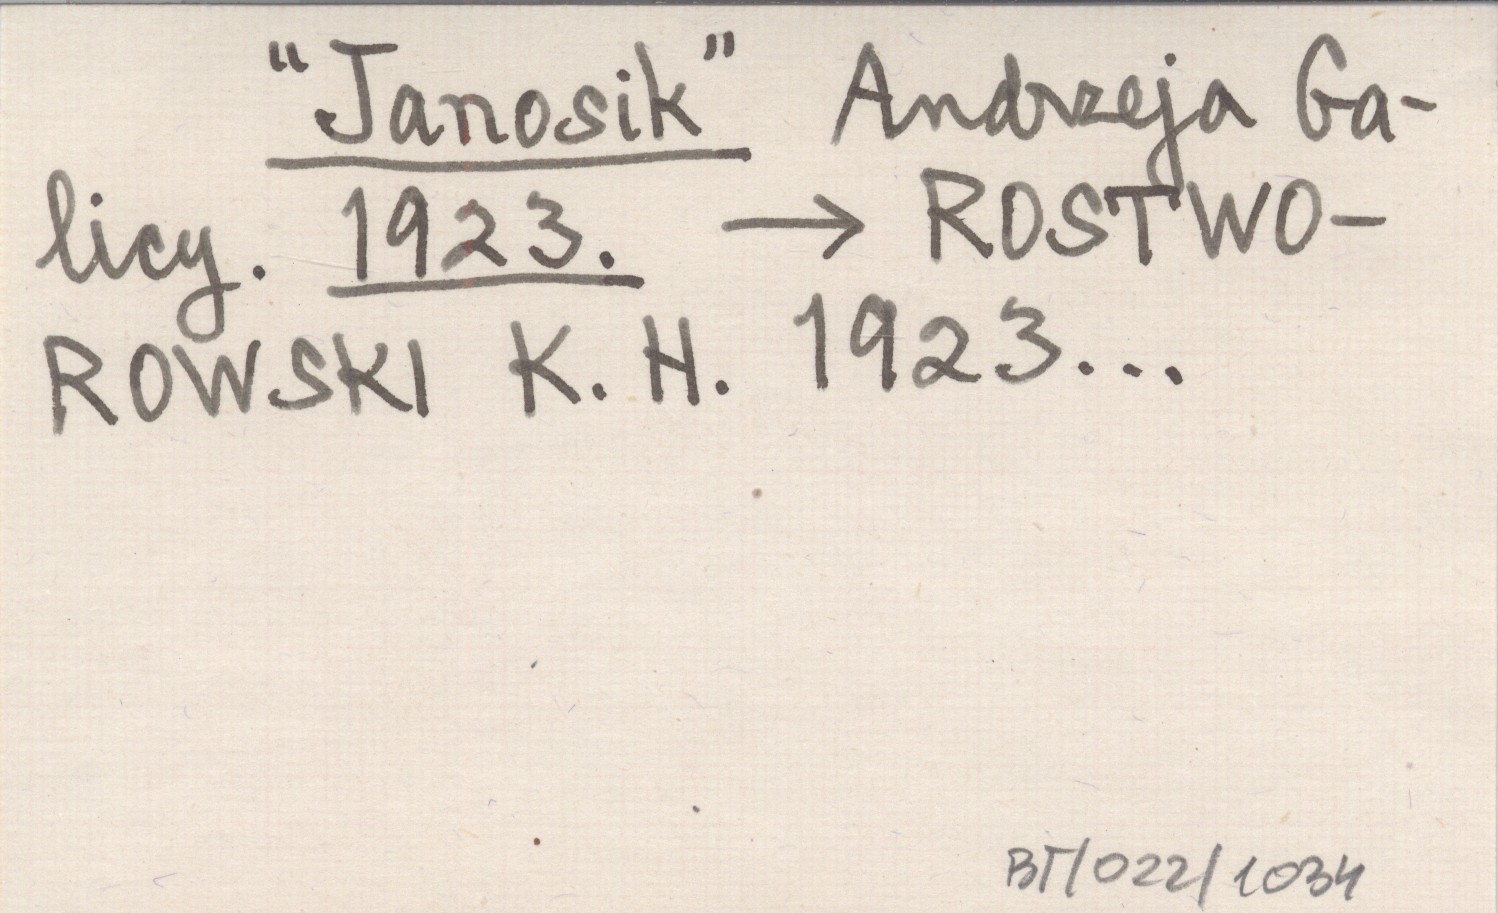 “Janosik” Andrzeja Ga-
licy. 1923. → ROSTWO-
ROWSKI K. H. 1923...
BT/022/1034